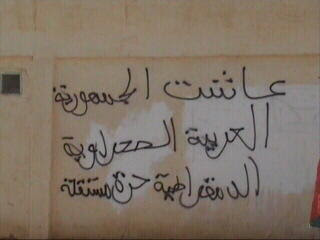 عاشت الجمهورية
العربية الصحراوية
الدمقراطية حرة مستقلة